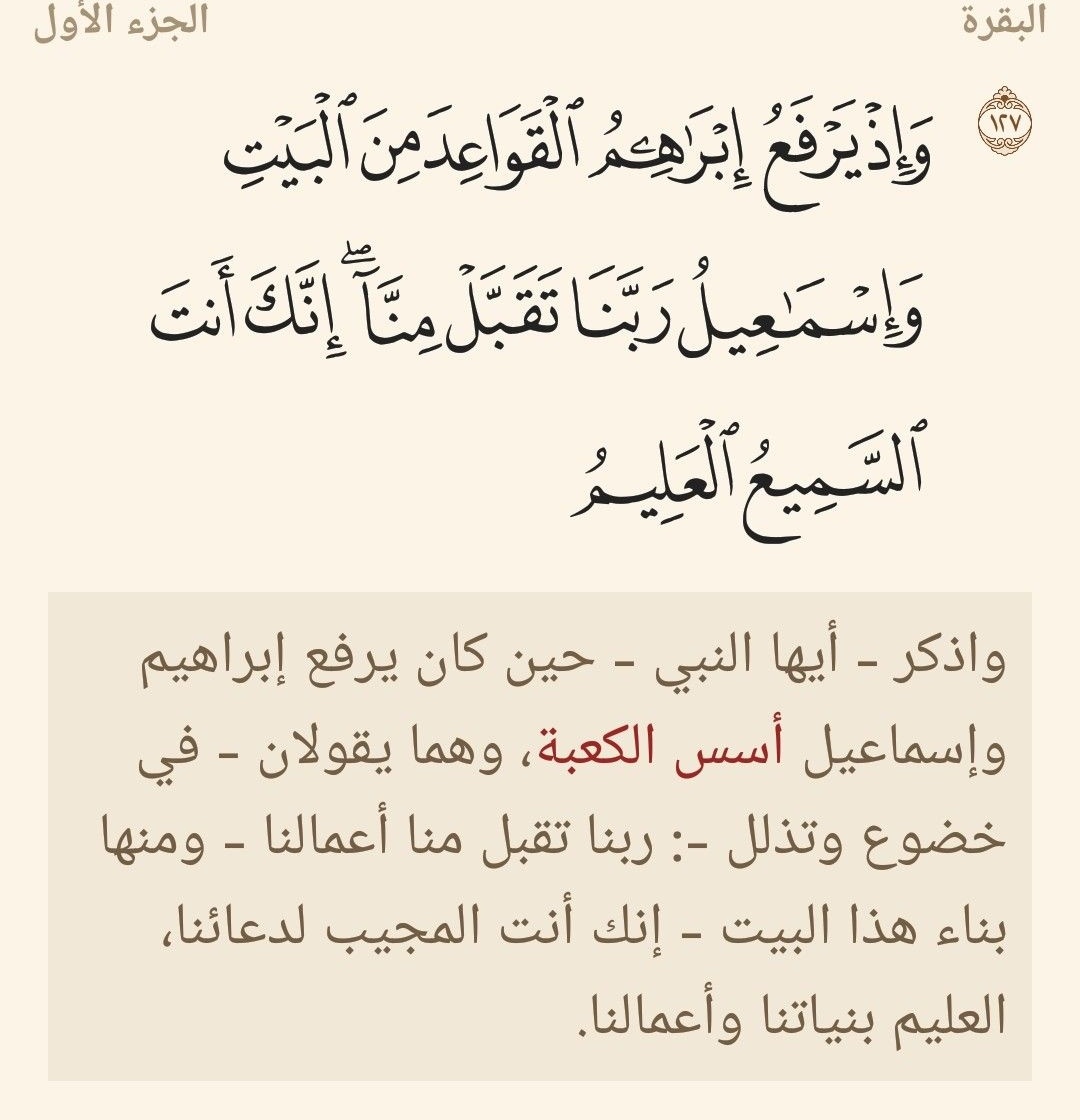 البقرة
الجزء الأول
١٢٧
وَإِذۡ يَرۡفَعُ إِبۡرَٰهِـۧمُ ٱلۡقَوَاعِدَ مِنَ ٱلۡبَيۡتِ
وَإِسۡمَٰعِيلُ رَبَّنَا تَقَبَّلۡ مِنَّآۖ إِنَّكَ أَنتَ
ٱلسَّمِيعُ ٱلۡعَلِيمُ
واذكر - أيها النبي - حين كان يرفع إبراهيم
وإسماعيل أسس الكعبة، وهما يقولان - في
خضوع وتذلل -: ربنا تقبل منا أعمالنا - ومنها
بناء هذا البيت - إنك أنت المجيب لدعائنا،
العليم بنياتنا وأعمالنا.